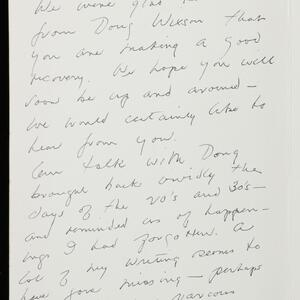 We were glad to
from Doug Wixson that
you are making a good
recovery. We hope you will
soon be up and around—
we would certainly like to
hear from you.
Our talk with Doug
brought back vividly the
days of the 20's and 30's—
and reminded us of happen-
ings I had forgotten. A
lot of my writing seems to
have gone missing—perhaps
various